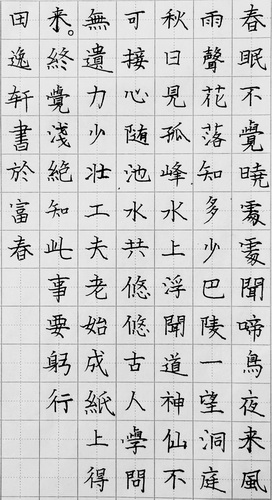 春眠不覺曉處處聞啼鳥夜来風
雨聲花落知多少巴陵一望洞庭
秋日見孤峰水上浮聞道神仙不
可接心随池水共悠悠古人學問
無遺力少壮工夫老始成紙上得
来。終覺淺絶知此事要躬行
田逸轩書於富春